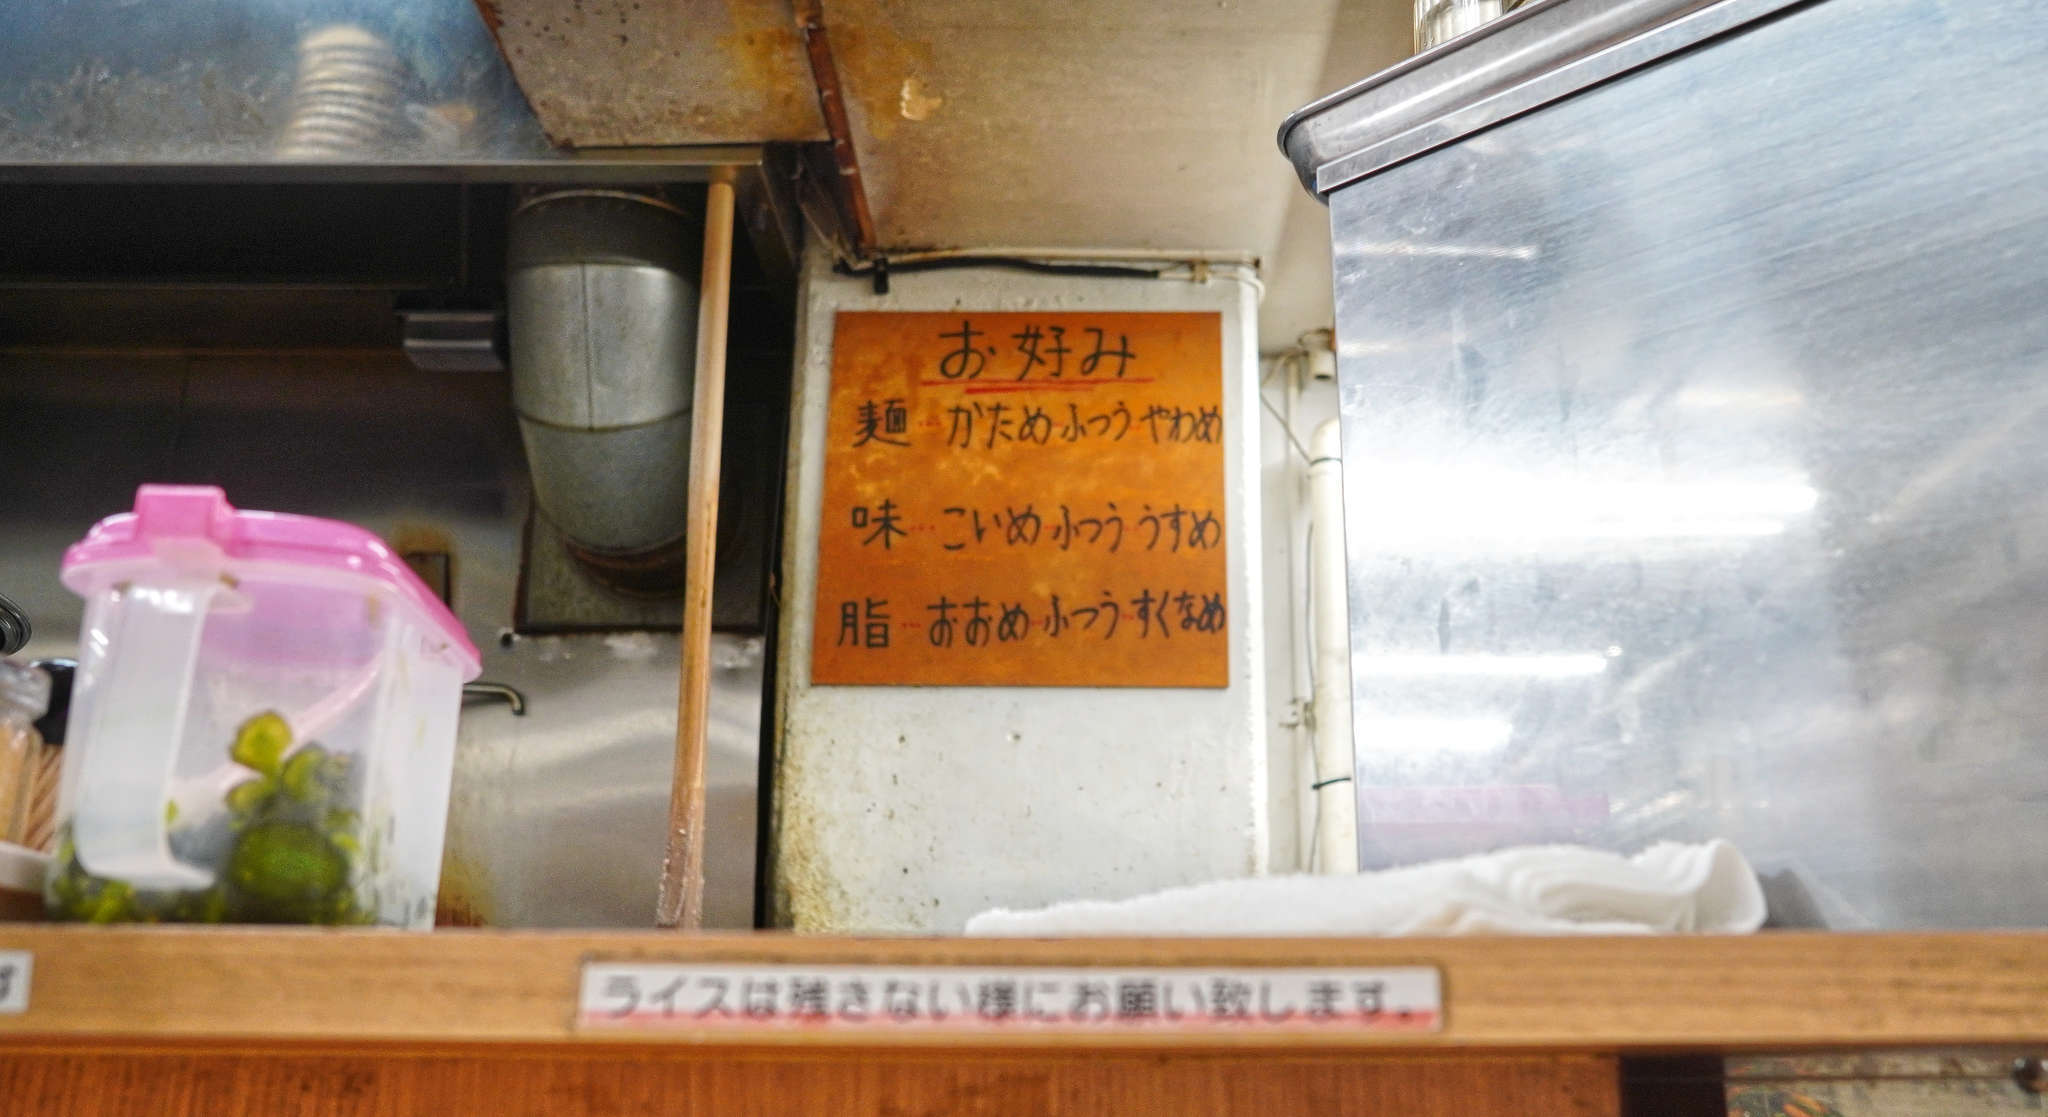 お好み
麺…かためふつうやわめ
味…こいめふつううすめ
脂…おおめふつうすくなめ
ライスは残さない様にお願い致します。